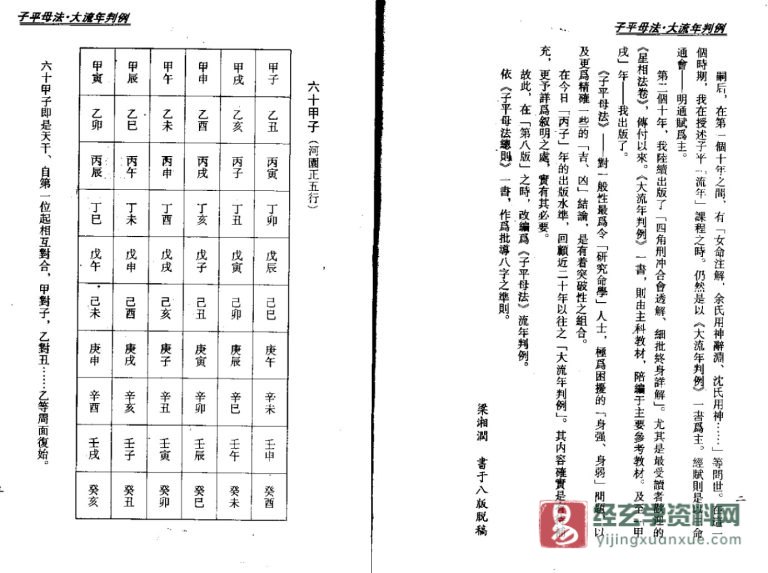 子平母法·大流年判例
嗣后，在第一個十年之間，有「女命注解、余氏用神辭淵、沈氏用神……」等問世。在這一
個時期，我在授述子平「流年」課程之時。仍然是以《大流年判例》一書爲主。經賦則是以命
通會——明通賦爲主。
第二個十年，我陸續出版了「四角刑冲合會透解、細批終身詳解」。尤其是最受讀者歡迎的
《星相法卷》，傳付以來。《大流年判例》一書，則由主科教材，陪編于主要參考教材。及至「甲
戌」年——我出版了。
《子平母法》——對一般性最爲令「研究命學」人士，極爲困擾的「身强、身弱」問題，以
及更爲精確一些的「吉、凶」結論，是有着突破性之組合。
在今日「丙子」年的出版水準，回顧近二十年以往之「大流年判例」。其內容確實是
充，更予詳爲叙明之處，實有其必要。
故此，在「第八版」之時，改編爲《子平母法》流年判例。
依《子平母法總則》一書，作爲批導八字之準則。
梁湘潤 書于八版脱稿
二
子平母法·大流年判例
六十甲子（河圖正五行）
甲子 乙丑 丙寅 丁卯 戊辰 己巳 庚午 辛未 壬申 癸酉
甲戌 乙亥 丙子 丁丑 戊寅 己卯 庚辰 辛巳 壬午 癸未
甲申 乙酉 丙戌 丁亥 戊子 己丑 庚寅 辛卯 壬辰 癸巳
甲午 乙未 丙申 丁酉 戊戌 己亥 庚子 辛丑 壬寅 癸卯
甲辰 乙巳 丙午 丁未 戊申 己酉 庚戌 辛亥 壬子 癸丑
甲寅 乙卯 丙辰 丁巳 戊午 己未 庚申 辛酉 壬戌 癸亥
六十甲子即是天干、自第一位起相互對合，甲對子，乙對丑……乙等周面復始。
一
经玄学资料网
yijingxuanxue.com